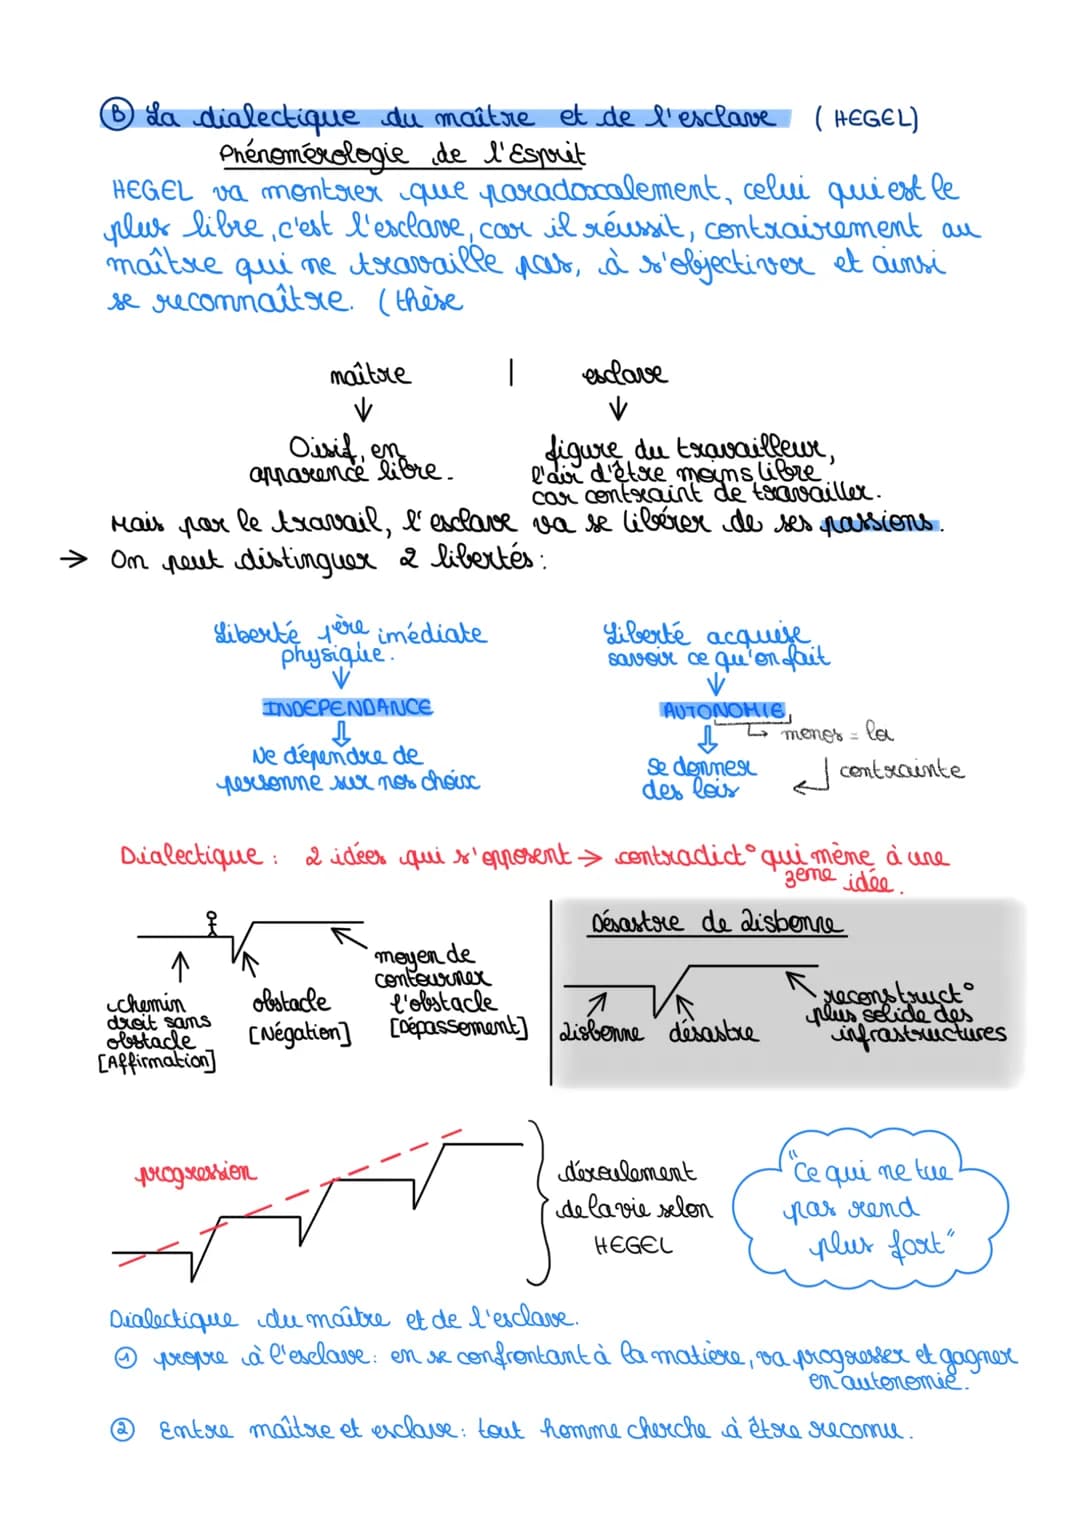 Ⓑ La dialectique du maître et de l'esclave (HEGEL)
Phénomérologie de l'Esprit
HEGEL va montrer que paradoxalement, celui qui est le
plus libre, c'est l'esclave, car il réussit, contrairement au
maître qui ne travaille pas, à s'objectiver et ainsi
se reconnaître. (thèse
maître | esclave
↓ ↓
Oisif, en
apparence libre.
figure du travailleur,
l'air d'être moins libre
car contraint de travailler.
Mais par le travail, l'esclave va se libérer de ses passions.
→ On peut distinguer 2 libertés :
Liberté 1ère imédiate
physique.
↓
INDEPENDANCE
⇓
Ne dépendre de
personne sur nos choix
Liberté acquise
savoir ce qu'on fait
↓
AUTONOMIE
↳ monos = loi
contrainte
⇓
se donner
des lois
Dialectique : 2 idées qui s'opposent → contradict° qui mène à une
3ème idée.
chemin
droit sans
obstacle
[Affirmation]
obstacle
[Négation]
moyen de
contourner
l'obstacle
[Dépassement]
Désastre de Lisbonne
Lisbonne
désastre
reconstruct°
plus solide des
infrastructures
progression
déroulement
de la vie selon
HEGEL
"Ce qui ne tue
pas rend
plus fort"
Dialectique du maître et de l'esclave.
① propre à l'esclave : en se confrontant à la matière, va progresser et gagner
en autonomie.
② Entre maître et esclave : tout homme cherche à être reconnu.